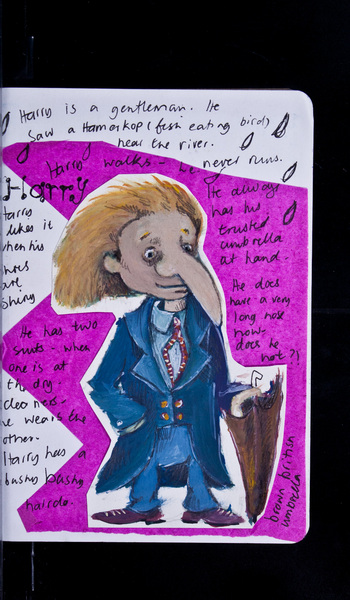 Harry is a gentleman. He
saw a Hamerkop (fish eating bird)
near the river.
Harry walks - he never runs.
Harry
Harry
likes it
when his
shoes
are
shiny
He always
has his
trusted
umbrella
at hand.
He does
have a very
long nose
now-
does he
not?!
He has two
suits - when
one is at
the dry-
cleaners-
he wears the
other.
Harry has a
bushy bushy
hairdo.
brown british
umbrella